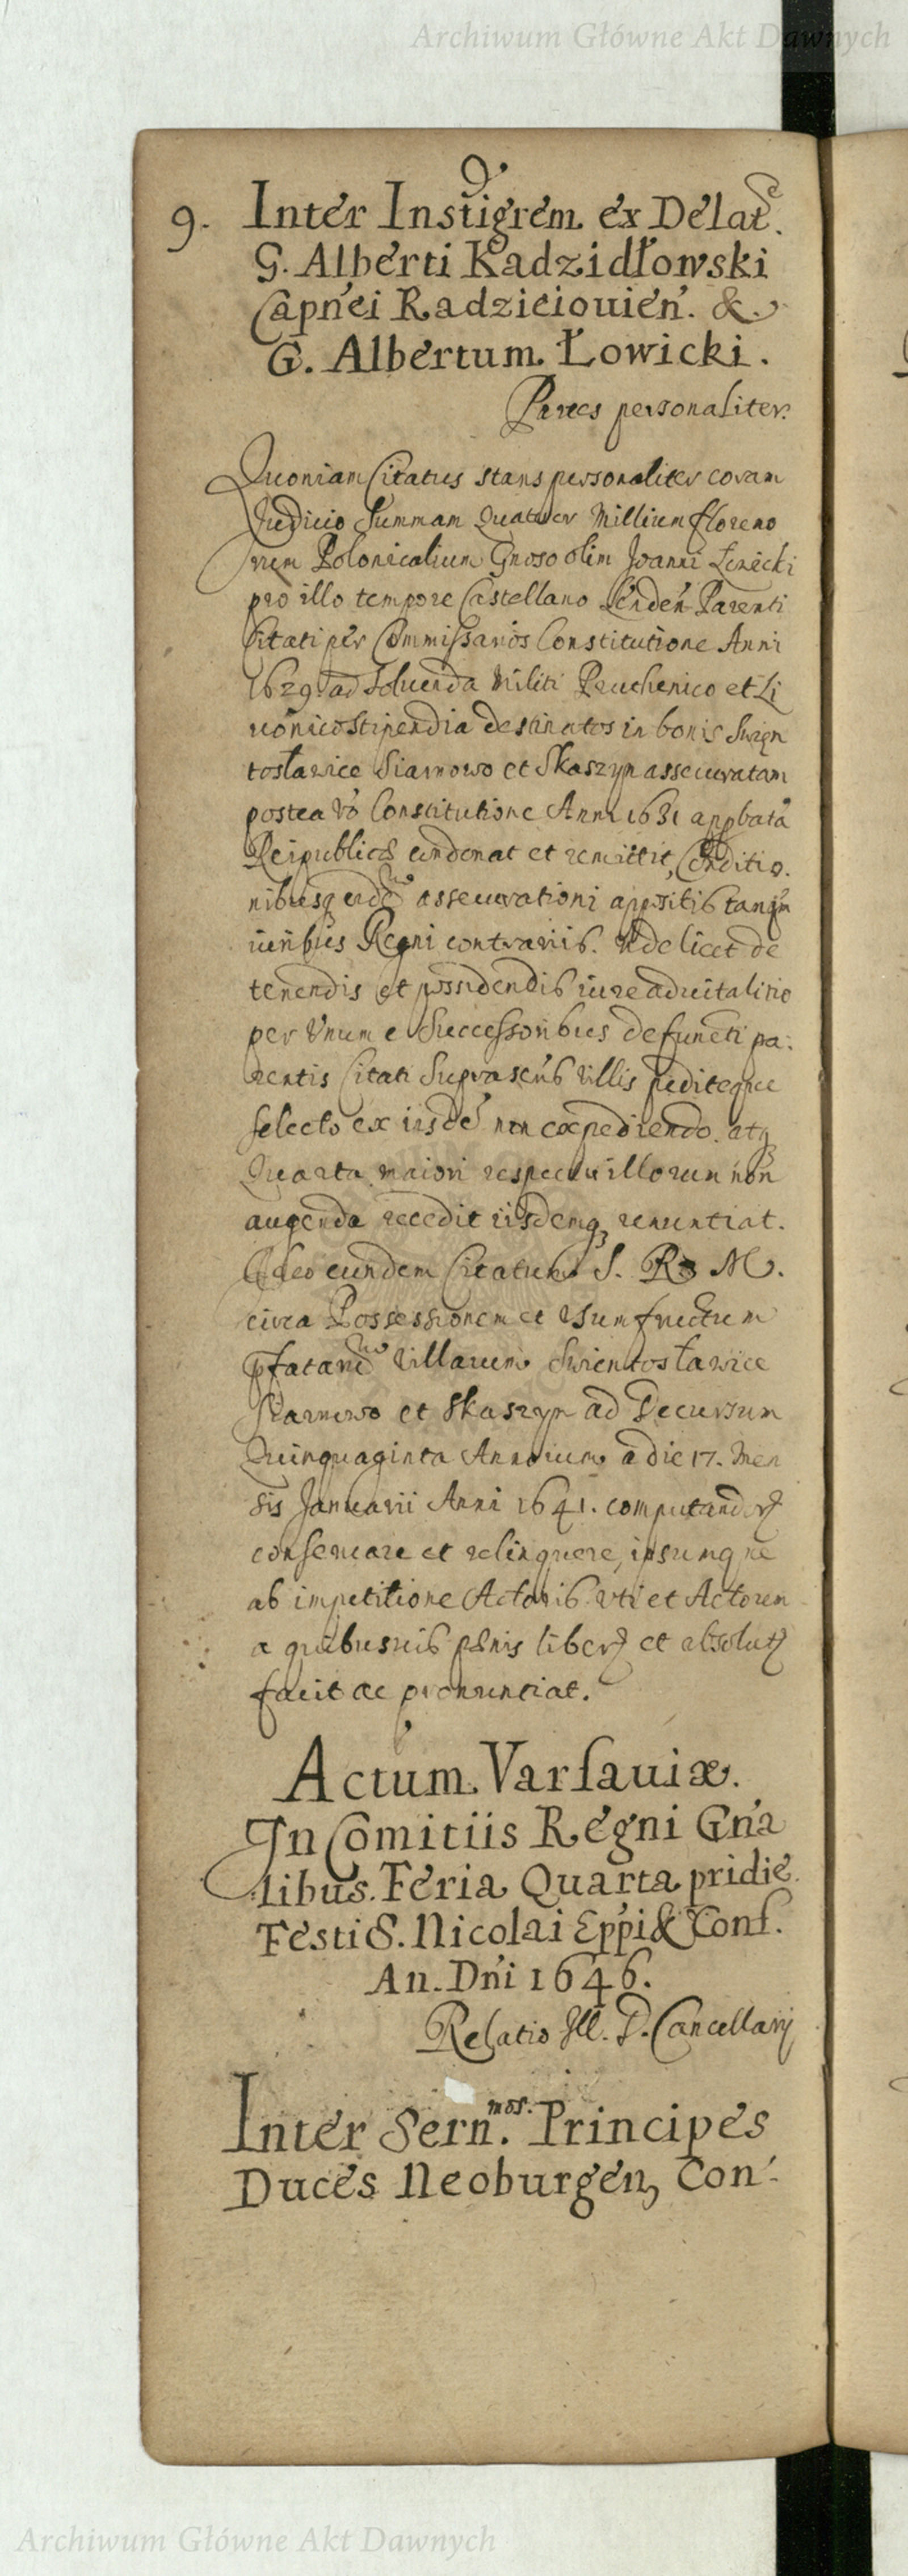 Archiwum Główne Akt Dawnych
9. Inter Instigrem ex Delat.
G. Alberti Kadzidłowski
Capnei Radzieiouien. &
G. Albertum Łowicki.
Partes personaliter.
Quoniam Citatus stans personaliter coram
Judicio Summam Quatuor Millium floreno
rum Polonicalium Gnoso olim Joanni
pro illo tempore Castellano Lenden Parenti
Citati per Commissarios Constitutione Anni
1629 ad soluenda Militi et Li
uonico Stipendia destinatos in bonis Święn
tosławice Siarnowo et Skaszyn assecuratam
postea vo Constitutione Anni 1631 appbata
Reipublicae condonat et remittit, Conditio.
nibusq assecurationi appositis tanqm
iuribus Regni contrariis. Videlicet de
tenendis et possidendis iure aduitalitio
per Unum e Successoribus defuncti pa:
rentis Citati Suprascris Villis pediteque
selecto ex iisde non expediendo. atq
Quarta maiori respectu illorum non
augenda recedit iisdemq renuntiat.
Ideo eundem Citatum S. R. M.
circa Possessionem et Usumfructum
pfatarum Villarum Swientosławice
Siarnowo et Skaszyn ad Decursum
Quinquaginta Annorum a die 17. Men
sis Januarii Anni 1641. computandorum
conseruare et relinquere, ipsumque
ab impetitione Actoris uti et Actorem
a quibusuis paenis liberum et absolutum
facit ac pronuntiat.
Actum Varsauiæ.
In Comitiis Regni Gn̄a
libus. Feria Quarta pridie
Festi S. Nicolai Ep̄pi & Conf.
An. Dn̄i 1646.
Relatio Ill. D. Cancellarij
Inter Sern.mos. Principes
Duces Neoburgen, Con:
Archiwum Główne Akt Dawnych